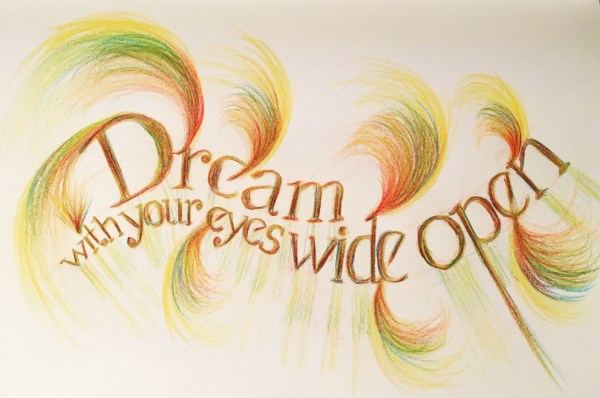 Dream
with your eyes wide open